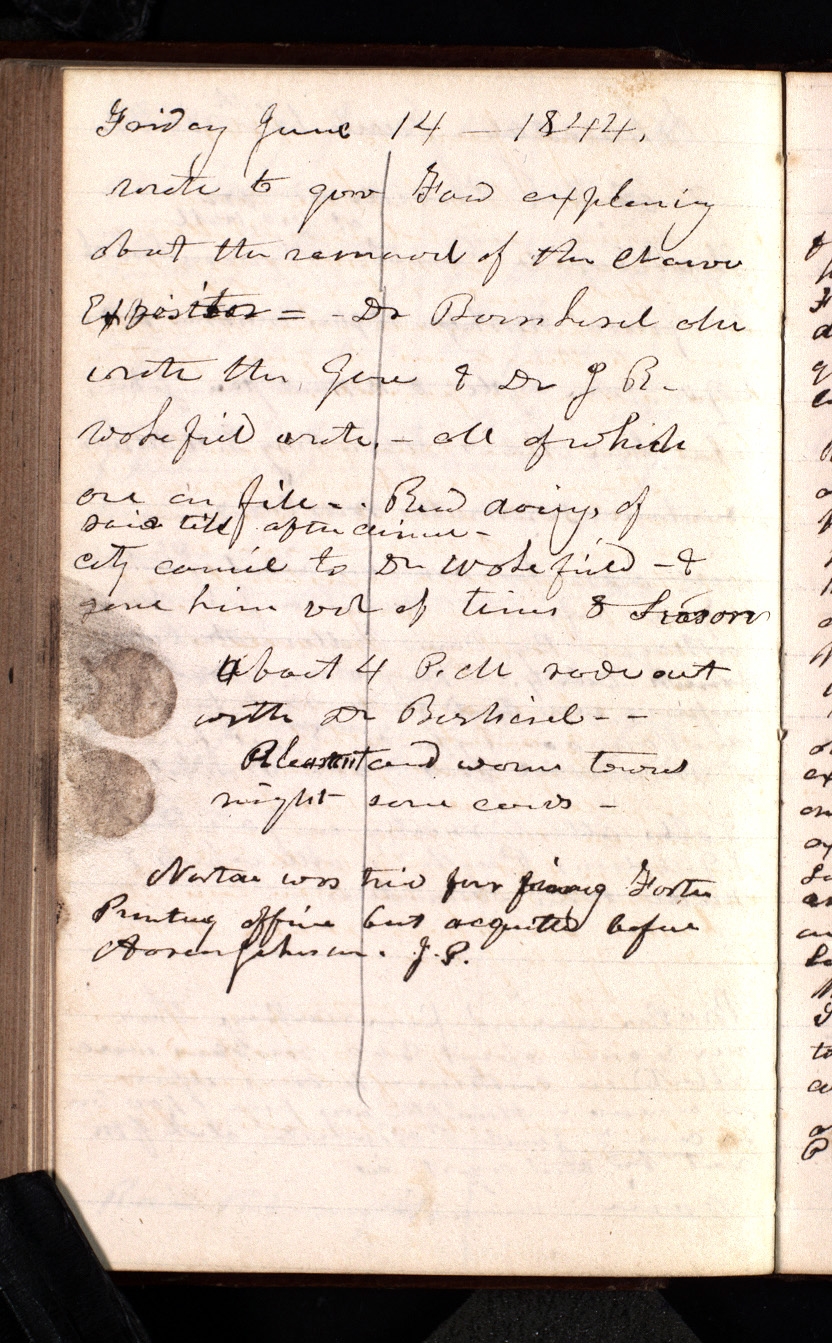 Friday June 14 - 1844.
wrote to gov Ford explaining
about the removal of the Nauvoo
Expositor = - Dr Bernhisel also
wrote the Gove & Dr J R.
Wakefield wrote. - all of which
are on file - . Read doings of
said till after dinner -
city council to Dr Wakefield - &
gave him vol of times & Seasons
About 4 P.M rode out
with Dr Berhisel - -
Pleasant and warm toward
night some clouds -
Norton was tried for Foster
Printing office but acquitted before
Aaron Johnson. J.P.